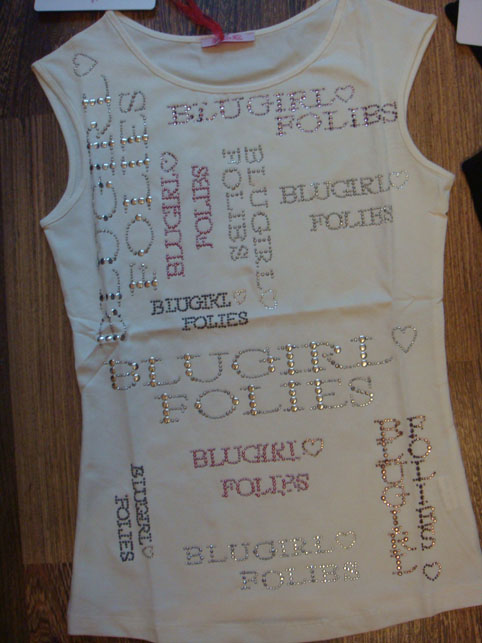 BLUGIRL
FOLIES
BLUGIRL
FOLIES
BLUGIRL
FOLIES
BLUGIRL
FOLIES
BLUGIRL
FOLIES
BLUGIRL
FOLIES
BLUGIRL
FOLIES
BLUGIRL
FOLIES
BLUGIRL
FOLIES
BLUGIRL
FOLIES